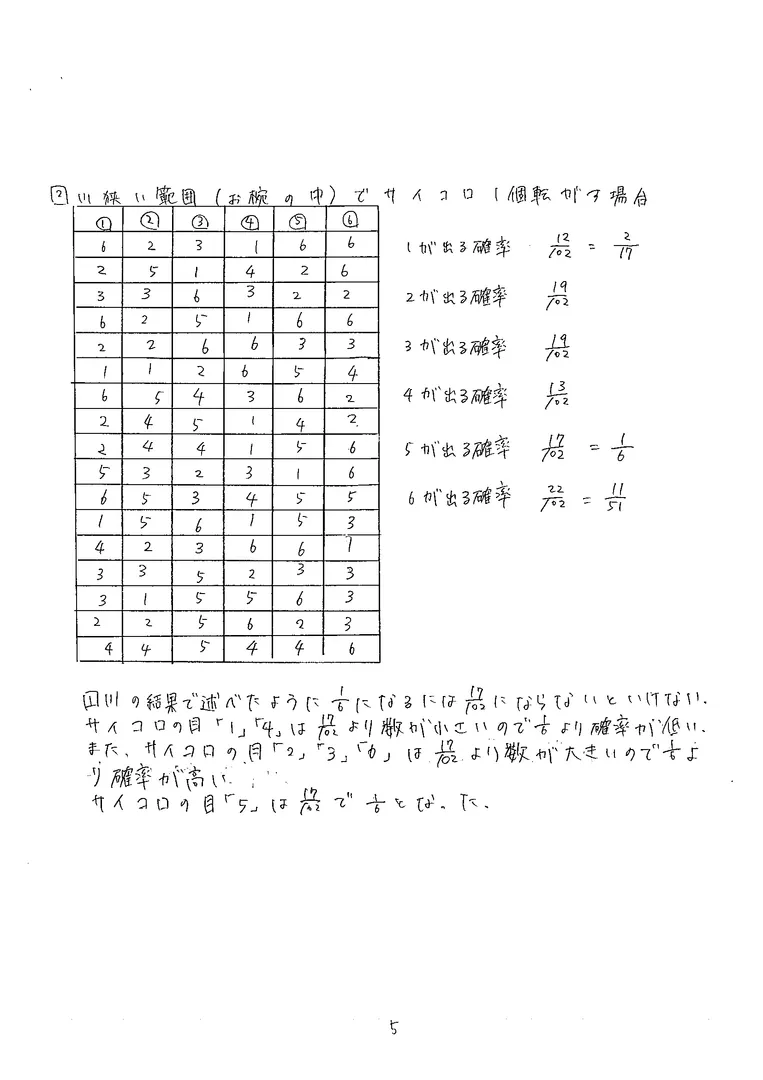 ② (1) 狭い範囲(お椀の中)でサイコロ1個転がす場合
① ② ③ ④ ⑤ ⑥
6 2 3 1 6 6
2 5 1 4 2 6
3 3 6 3 2 2
6 2 5 1 6 6
2 2 6 6 3 3
1 1 2 6 5 4
6 5 4 3 6 2
2 4 5 1 4 2
2 4 4 1 5 6
5 3 2 3 1 6
6 5 3 4 5 5
1 5 6 1 5 3
4 2 3 6 6 1
3 3 5 2 3 3
3 1 5 5 6 3
2 2 5 6 2 3
4 4 5 4 4 6
1が出る確率 12/102 = 2/17
2が出る確率 19/102
3が出る確率 19/102
4が出る確率 13/102
5が出る確率 17/102 = 1/6
6が出る確率 22/102 = 11/51
1 (1)の結果で述べたように1/6になるには17/102にならないといけない.
サイコロの目「1」「4」は17/102より数が小さいので1/6より確率が低い.
また、サイコロの目「2」「3」「6」は17/102より数が大きいので1/6よ
り確率が高い.
サイコロの目「5」は17/102で1/6となった.
5